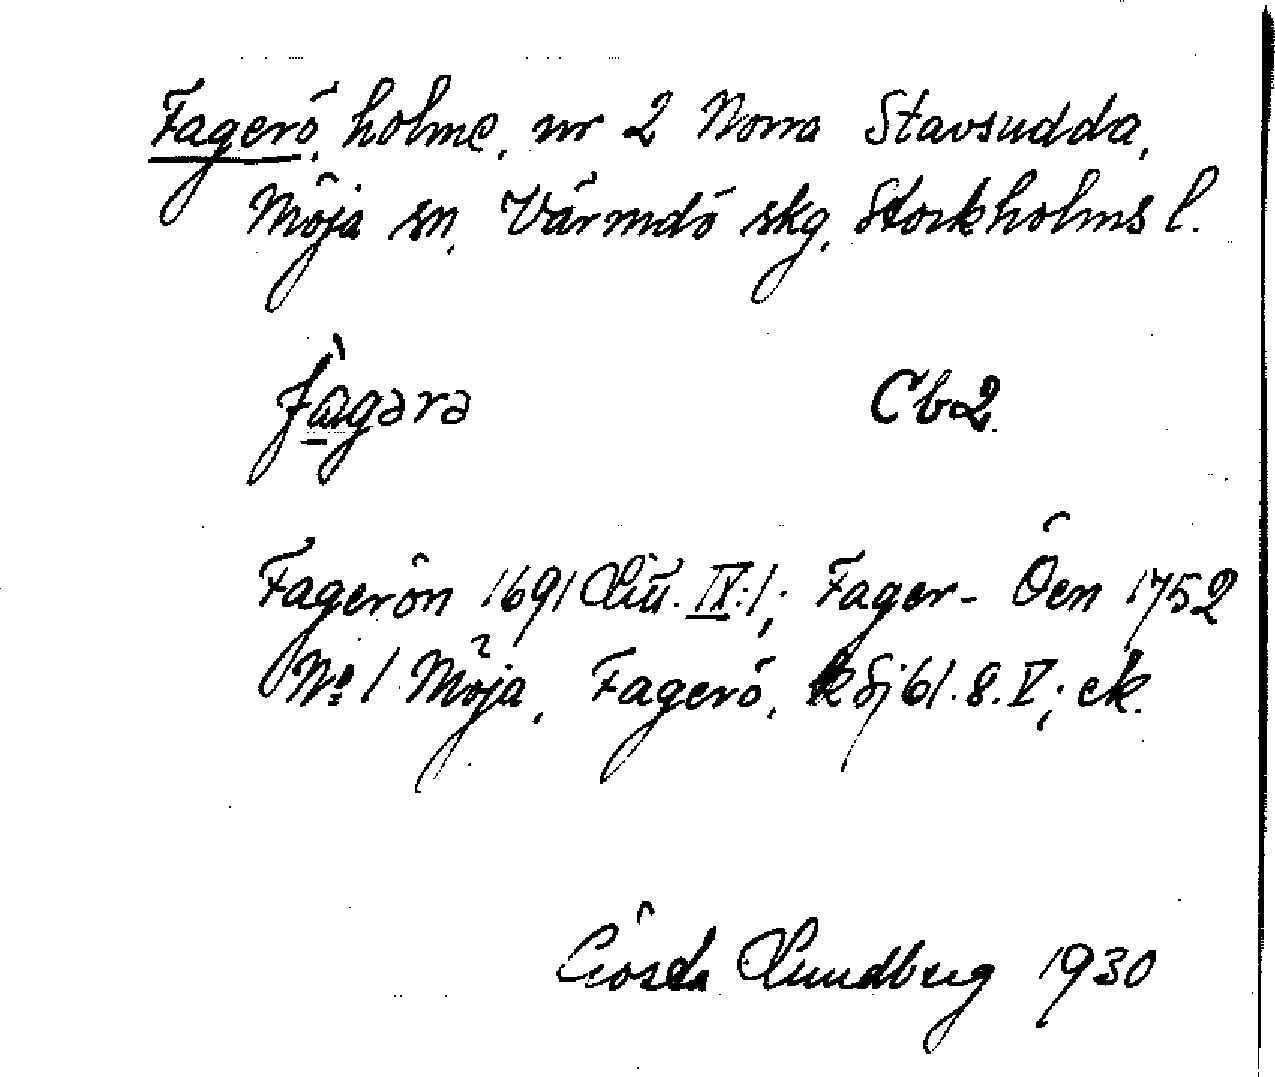 Fagerö, holme, nr 2 Norra Stavsudda,
Möja sn, Värmdö skg, Stockholms l.
fa̠gərə Cb2
Fagerön 1691 Litt. IX:1; Fager- Öen 1752
No 1 Möja, Fagerö, k Sj 61. 8. V; ek.
Gösta Lundberg 1930